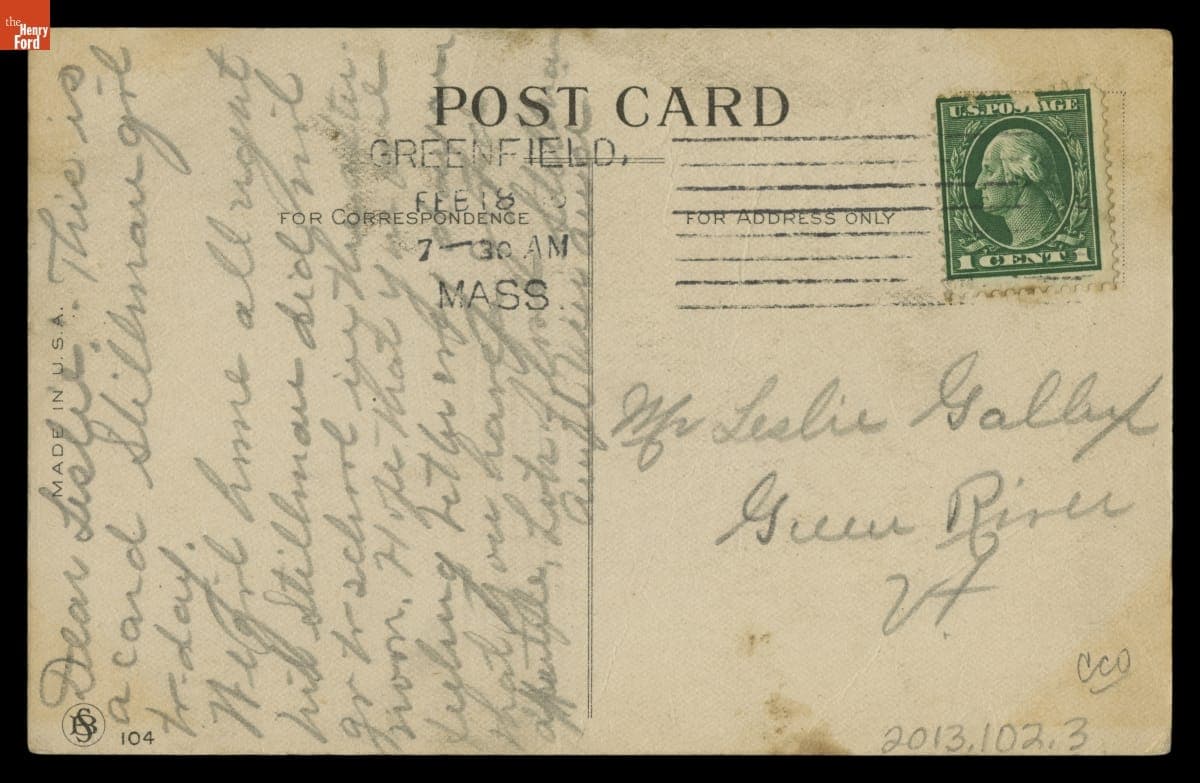 the
Henry
Ford
POST CARD
GREENFIELD,
FEB 18
7-30 AM
MASS.
FOR CORRESPONDENCE
FOR ADDRESS ONLY
U.S. POSTAGE
1 CENT 1
MADE IN U.S.A.
Dear Leslie. This is
a card Stillman girl
to-day.
We got home all right
but Stillman did not
go to school in the
noon. Hope that you are
feeling better
that you have
appetite, Lots
Mr Leslie
Green River
Vt
CCO
2013.102.3
SB
104